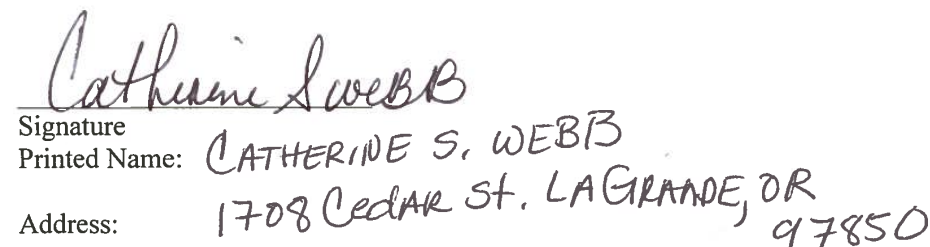 Catherine S WEBB
Signature
Printed Name: CATHERINE S. WEBB
Address: 1708 Cedar St. LAGRANDE, OR
97850